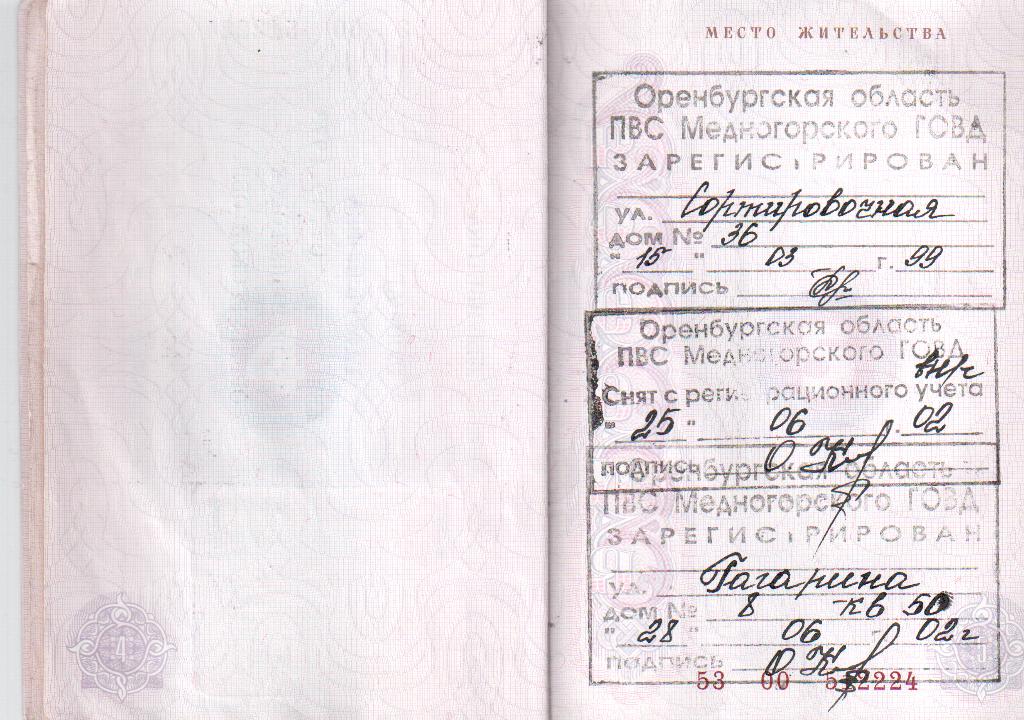 МЕСТО ЖИТЕЛЬСТВА
Оренбургская область
ПВС Медногорского ГОВД
ЗАРЕГИСТРИРОВАН
ул. Сортировочная
дом № 36
"15" 03 г. 99
подпись
Оренбургская область
ПВС Медногорского ГОВД
Снят с регистрационного учета
"25" 06 02
подпись
Оренбургская область
ПВС Медногорского ГОВД
ЗАРЕГИСТРИРОВАН
ул. Гагарина
дом № 8 кв 50
"28" 06 02 г
подпись
53 00
4